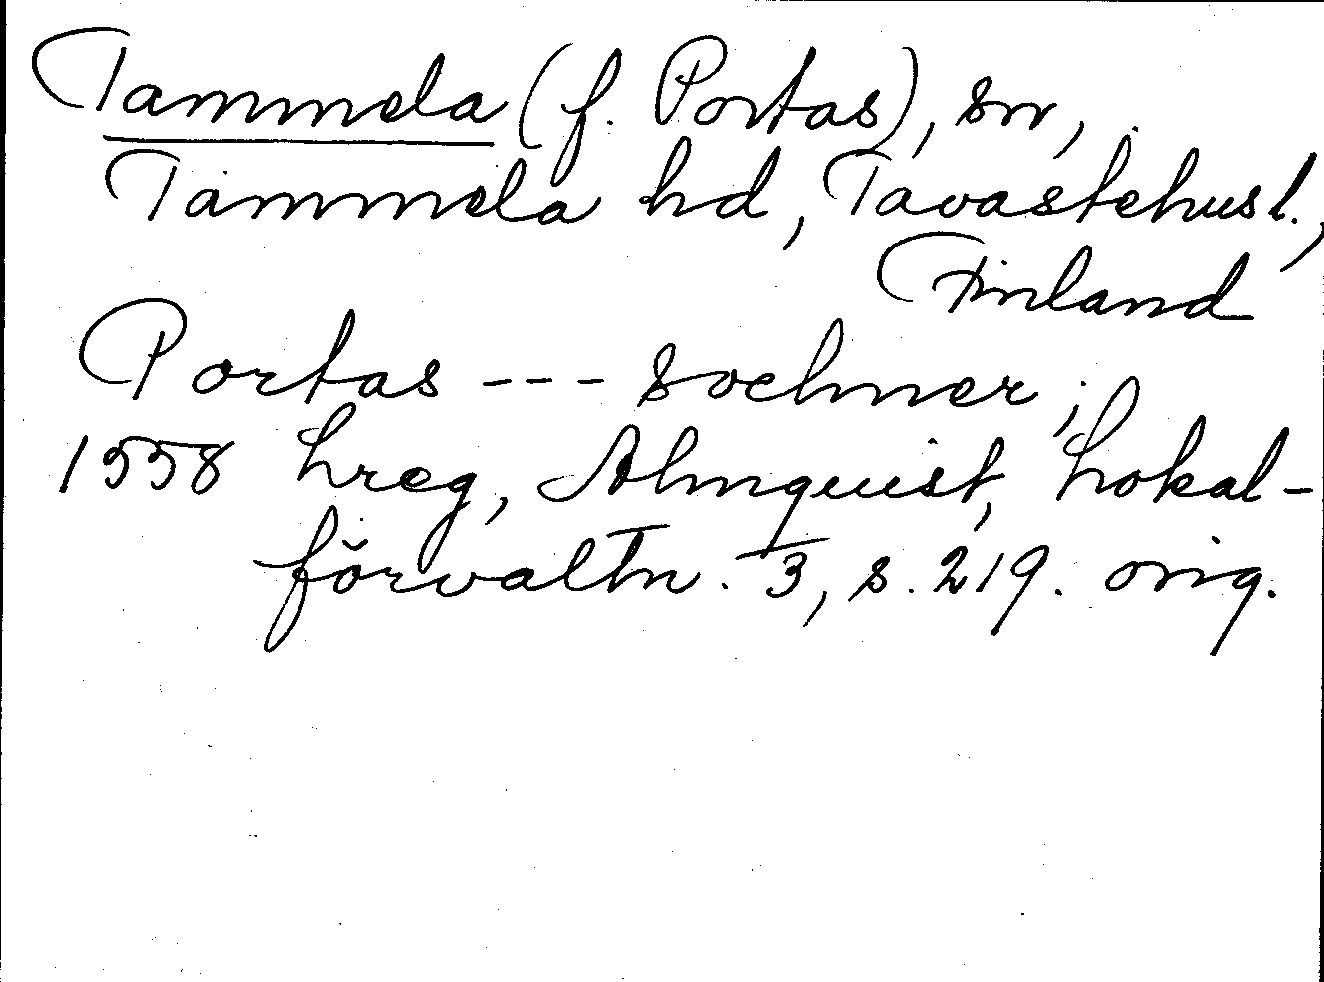 Tammela (f. Portas), sn,
Tammela hd, Tavastehus l.,
Finland
Portas --- sochner;
1558 hreg, Almquist, Lokal-
förvaltn. 3, s. 219. orig.